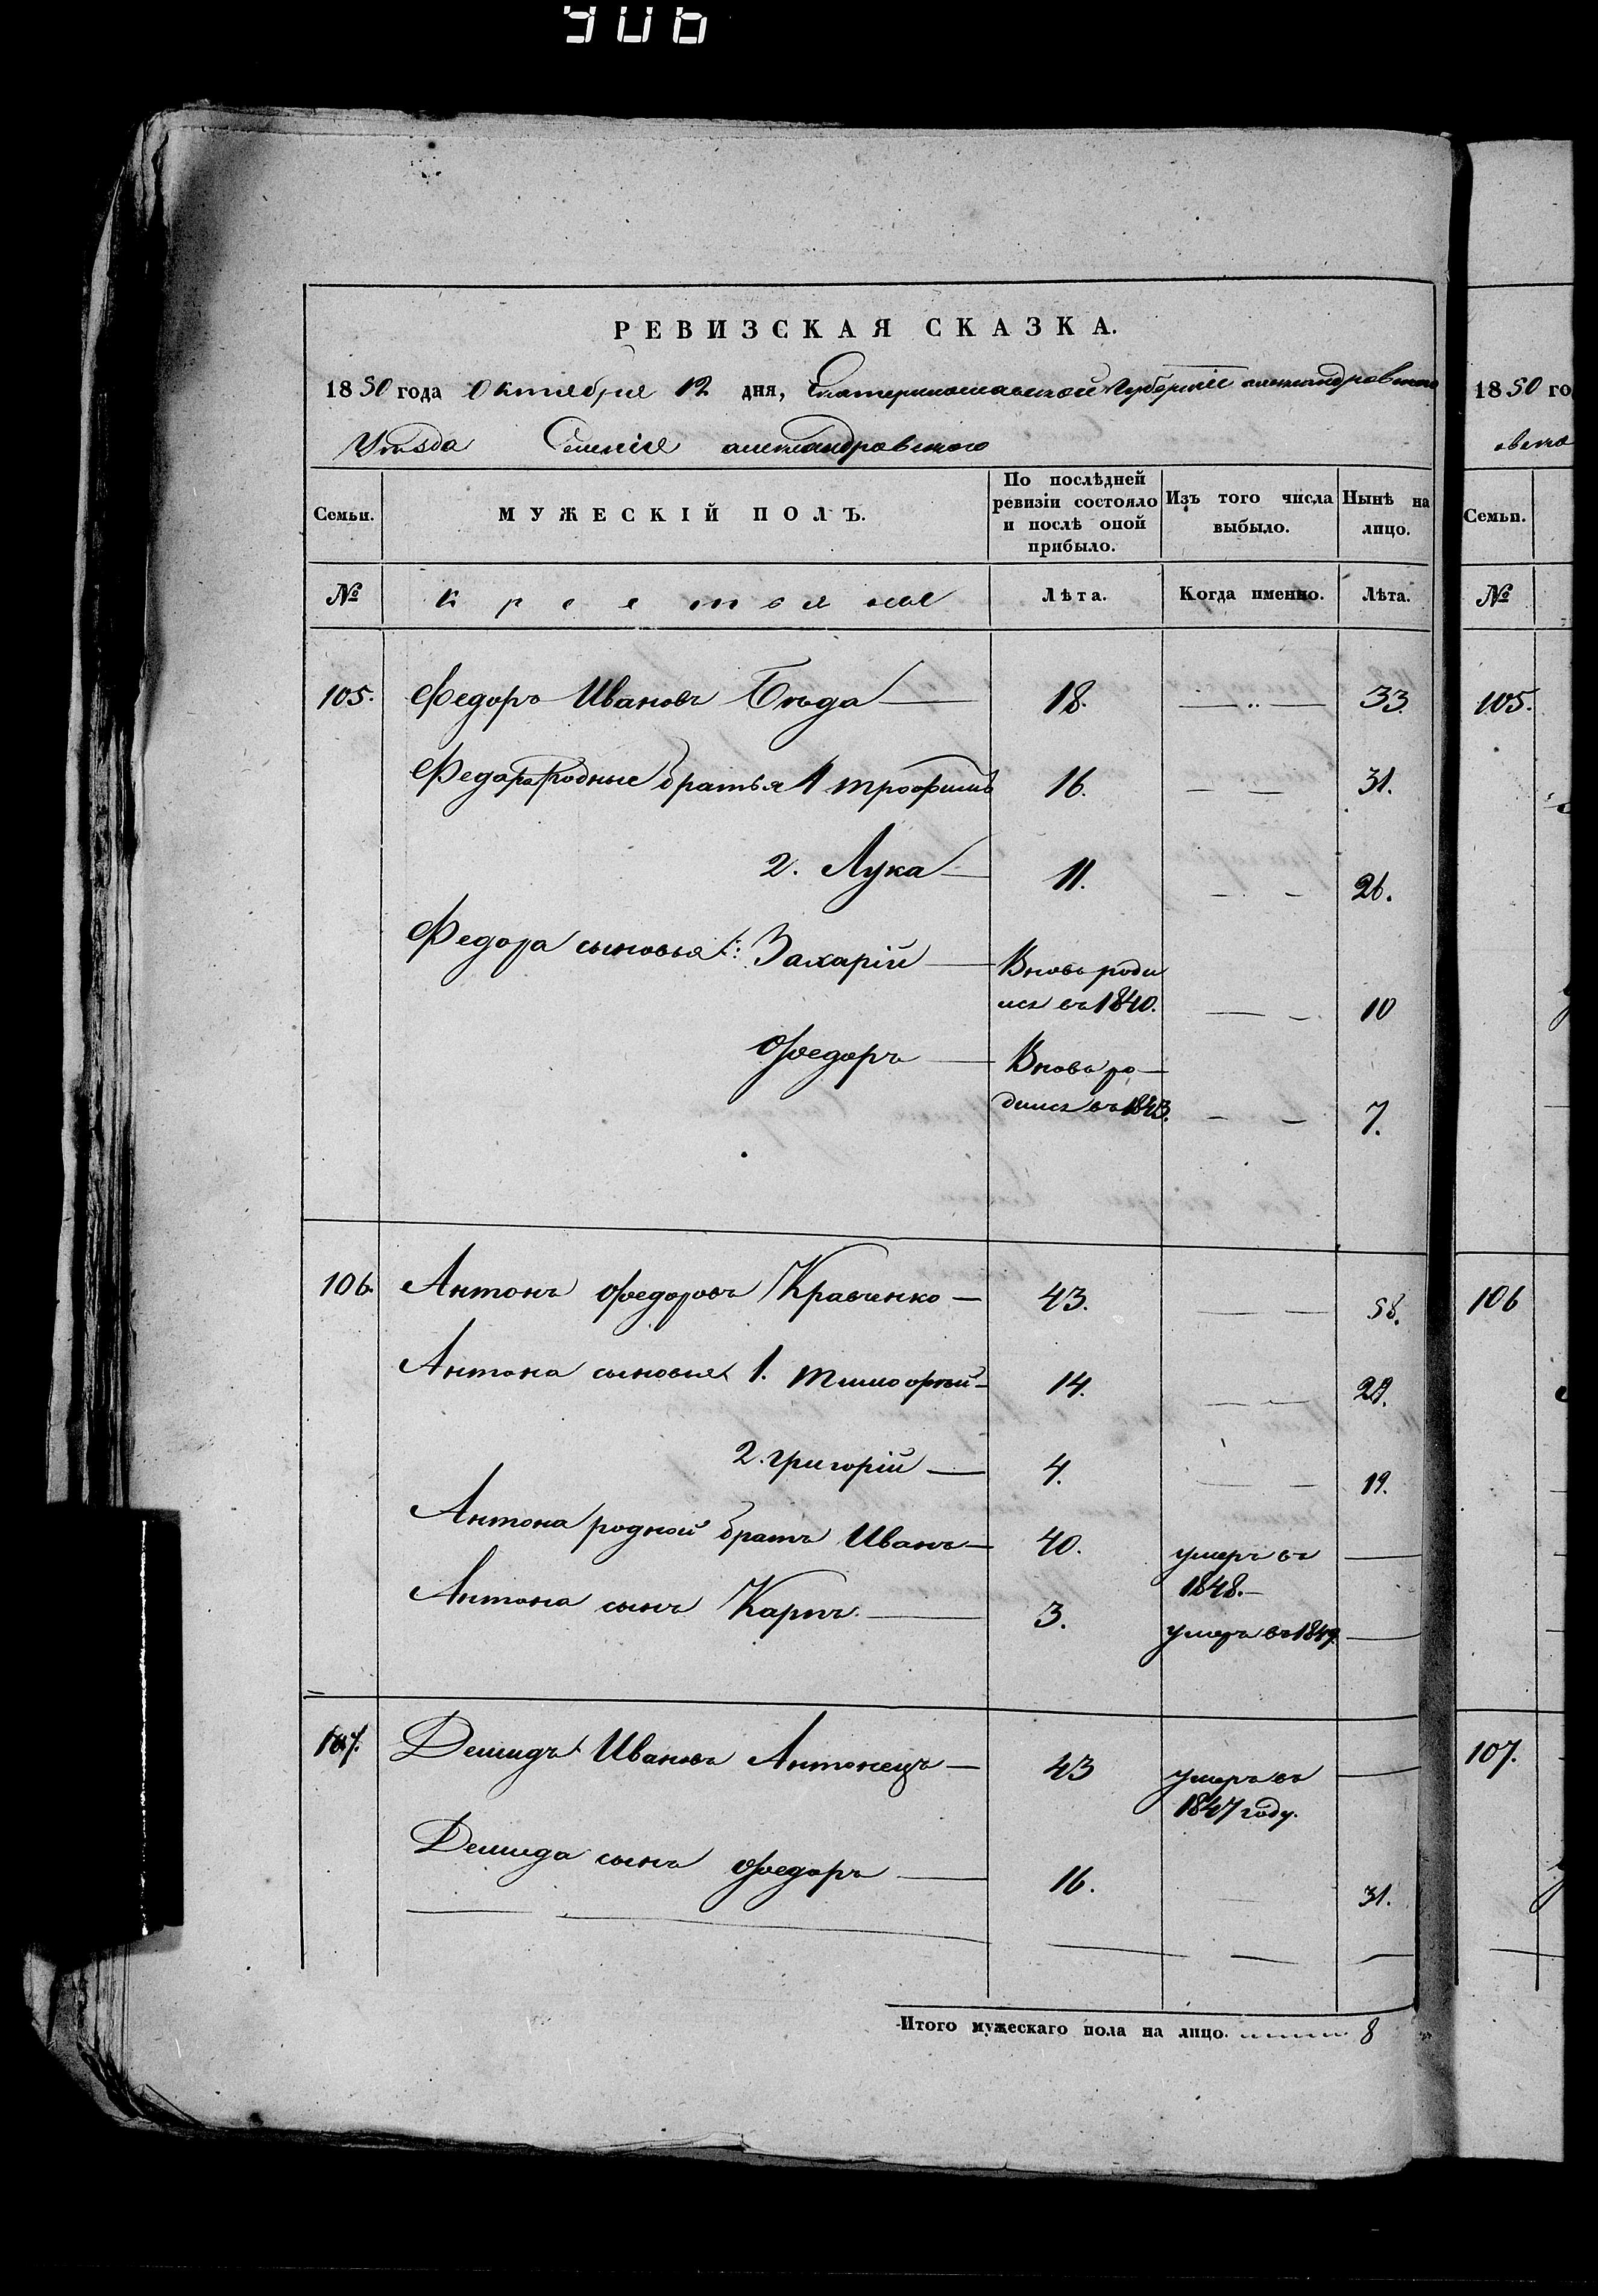 906
РЕВИЗСКАЯ СКАЗКА.
1850 года Октября 12 дня, Екатеринославской Губерніи александровскаго
Уѣзда Селенія александровскаго
Семьи. МУЖЕСКІЙ ПОЛЪ. По послѣдней ревизіи состояло и послѣ оной прибыло. Изъ того числа выбыло. Нынѣ на лицо.
№ крестьяне Лѣта. Когда именно. Лѣта.
105. Федоръ Ивановъ Бѣда — 18. — „ — 33.
Федора Родные братья 1 трофимъ 16. — — 31.
2. Лука — 11. — — 26.
Федора сыновья: Захарій — Вновь роди
лся въ 1840. — — 10
Федоръ — Вновь ро—
дился въ 1843. — — 7.
106. Антонъ Федоровъ Кравченко — 43. — — 58.
Антона сыновья 1. тимофѣй — 14. — — 29.
2. григорій — 4. — — 19.
Антона родной братъ Иванъ — 40. умеръ въ —
1848. —
Антона сынъ Карпъ — 3. умеръ въ 1849. —
107. Демидъ Ивановъ Антонецъ — 43 умеръ въ —
1847 году.
Демида сынъ Федоръ — 16. — 31.
Итого мужескаго пола на лицо. 8
1850 го
Семьи.
№
105.
106
107.